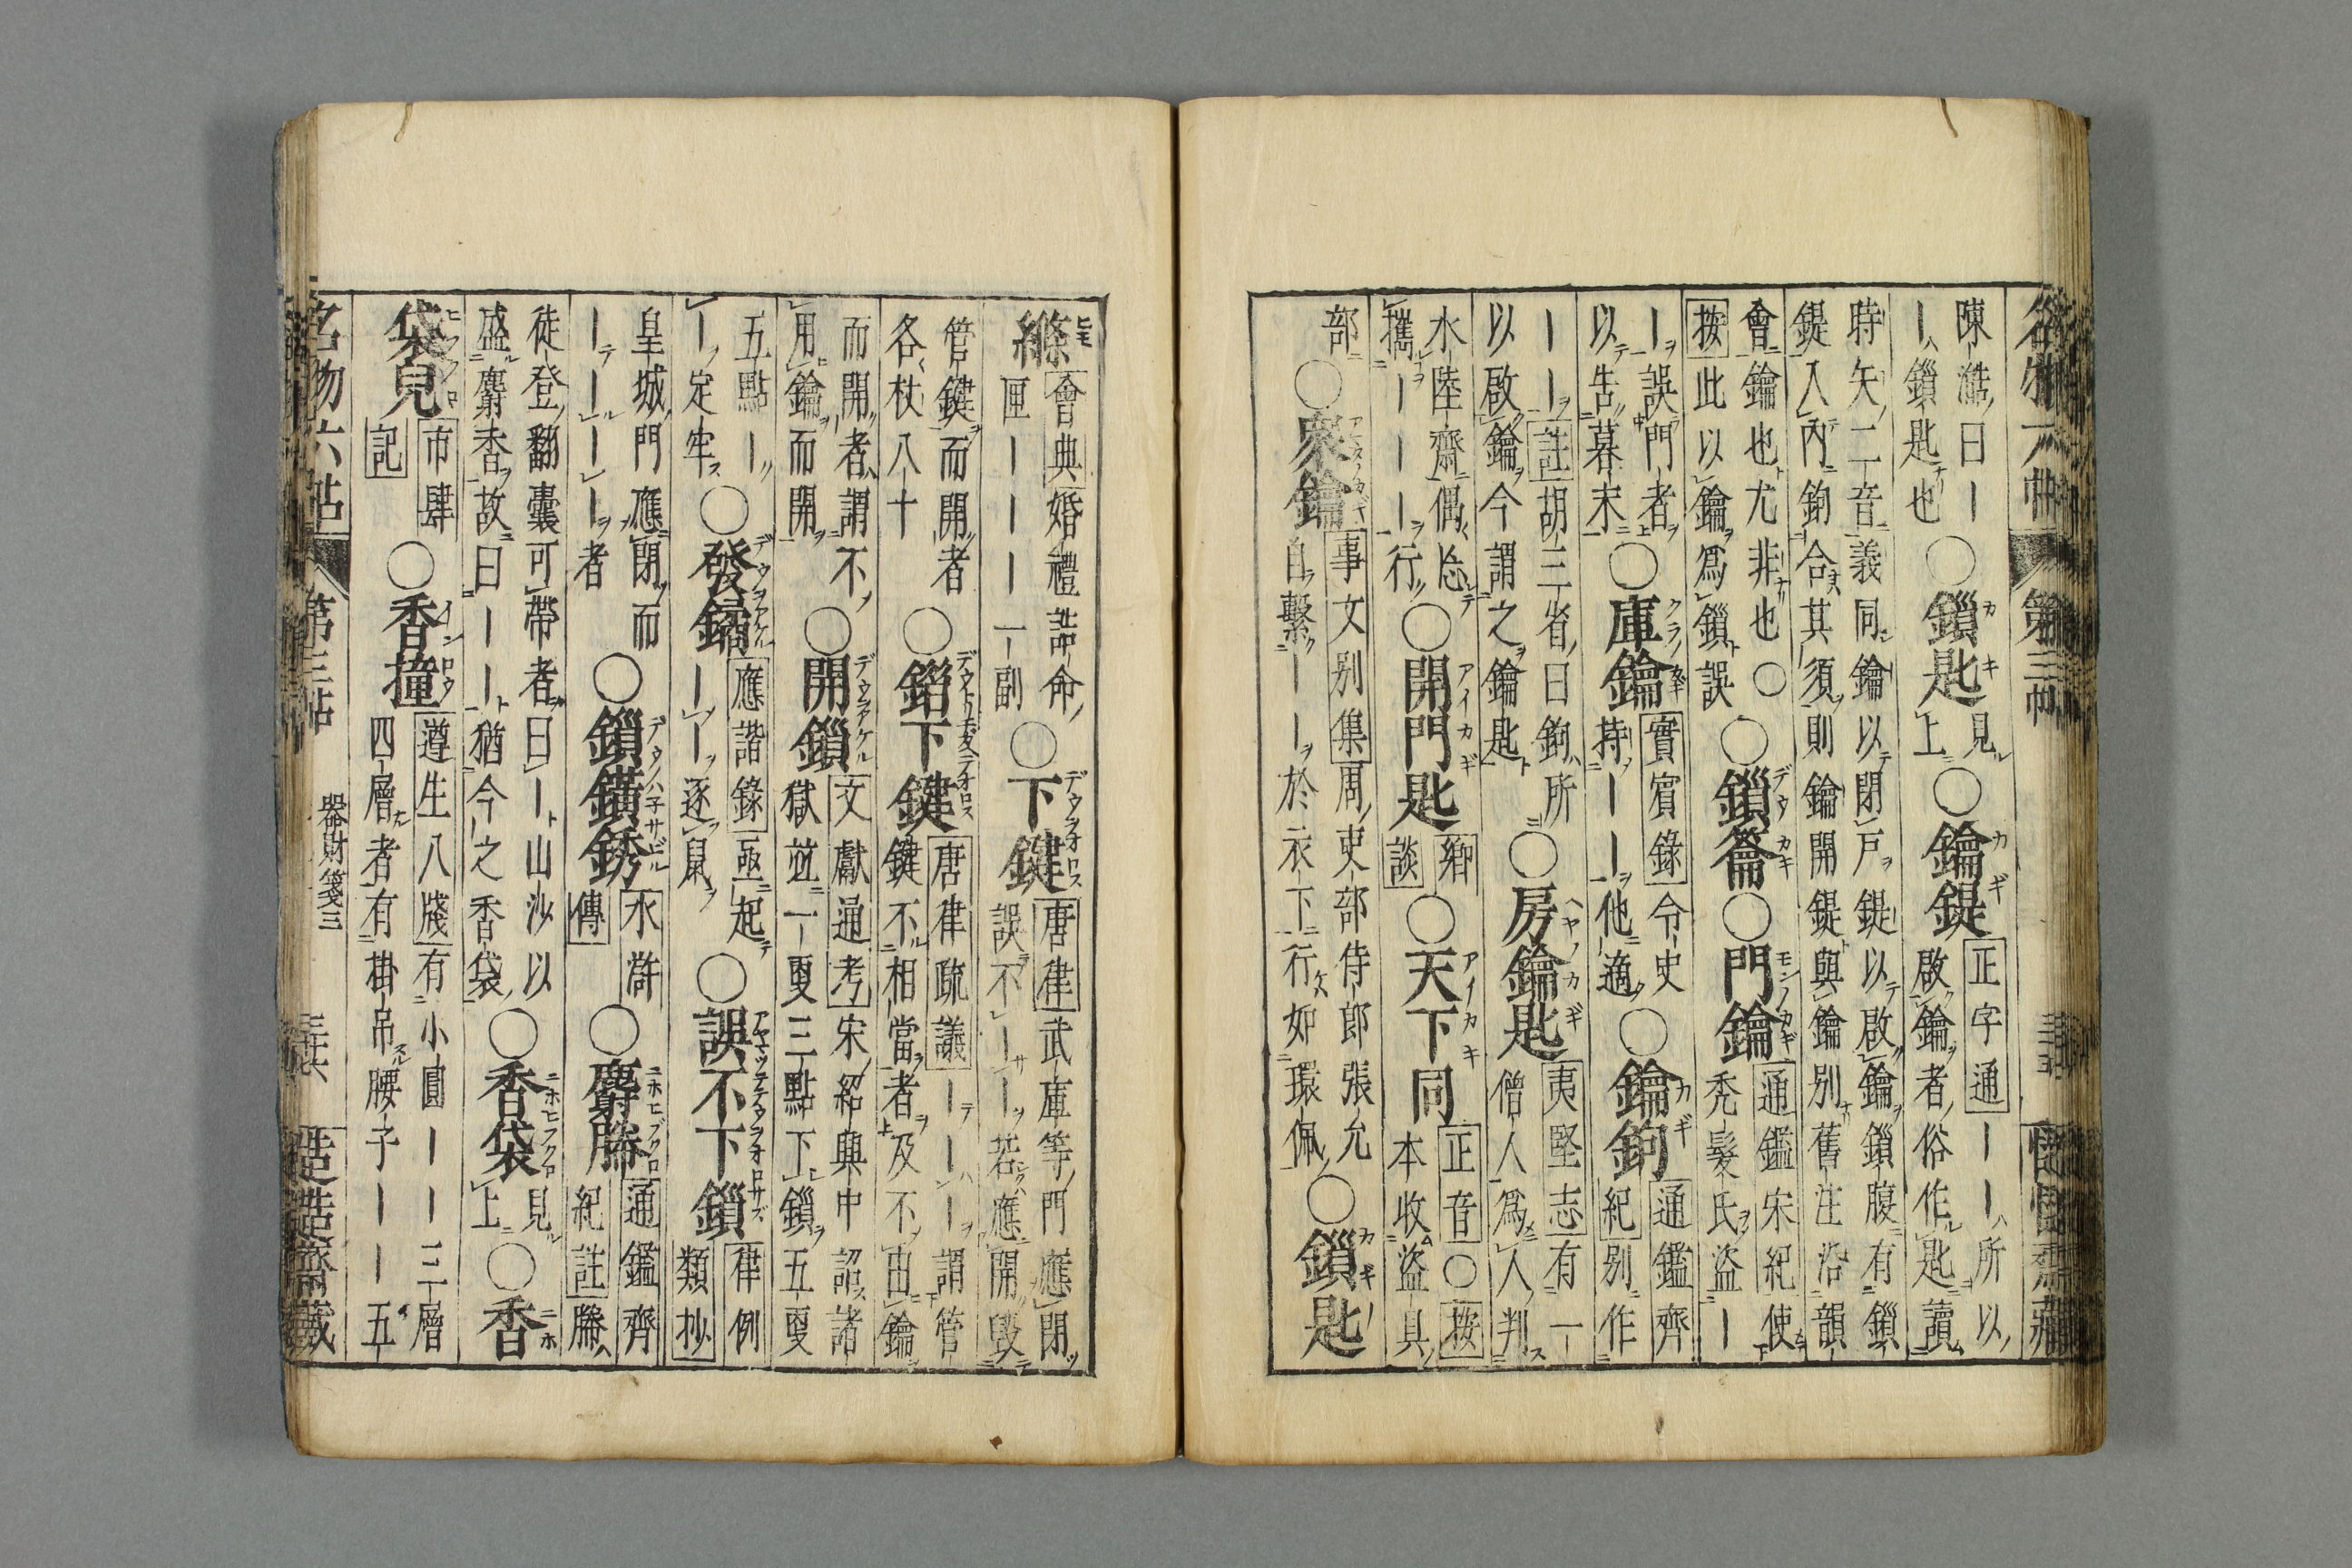 陳澔曰｜
｜鎖匙也○鎖匙見上○鑰鍉正字通｜｜所以
啟鑰者俗作匙讀
時矢二音義同鑰以閉戶鍉以啟鑰鎖腹有鎖
鍉入內鉤合其須則鑰開鍉與鑰別舊注沿韻
會鑰也尤非也○
按此以鑰爲鎖誤○鎖鑰○門鑰通鑑宋紀使
禿髮氏盜｜
｜誤門者
以告暮末○庫鑰實賓錄令史
持｜｜他適○鑰鉤通鑑齊
紀別作
｜｜註胡三省曰鉤所
以啟鑰今謂之鑰匙○房鑰匙夷堅志有一
僧人爲人判
水陸齋偶忘
攜｜｜｜行○開門匙鄉
談○天下同正音○按
本收盜具
部○衆鑰事文別集周吏部侍郎張允
自繫｜｜於衣下行如環佩○鎖匙
縧會典婚禮誥命
匣｜｜｜一副○下鍵唐律武庫等門應閉
誤不｜｜若應開毀
管鍵而開者
各杖八十○錯下鍵唐律疏議｜｜｜謂管
鍵不相當者及不由鑰
而開者謂不
用鑰而開○開鎖文獻通考宋紹興中詔諸
獄並一更三點下鎖五更
五點｜
｜定牢○發鐍應諧錄亟起
｜｜逐鼠○誤不下鎖律例
類抄
皇城門應閉而
｜｜｜｜者○鎖鐄銹水滸
傳○麝幐通鑑齊
紀註幐
徒登翻囊可帶者曰｜山沙以
盛麝香故曰｜｜猶今之香袋○香袋見上○香
袋兒市肆
記○香撞遵生八牋有小圓｜｜三層
四層者有掛吊腰子｜｜五
名物六帖
第三帖
器財箋三